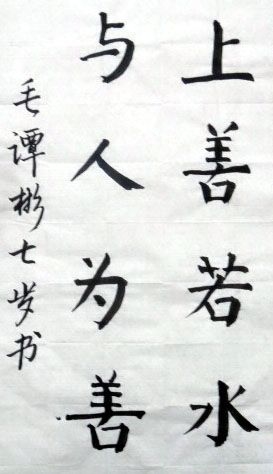 上善若水
与人为善
毛谭彬七岁书